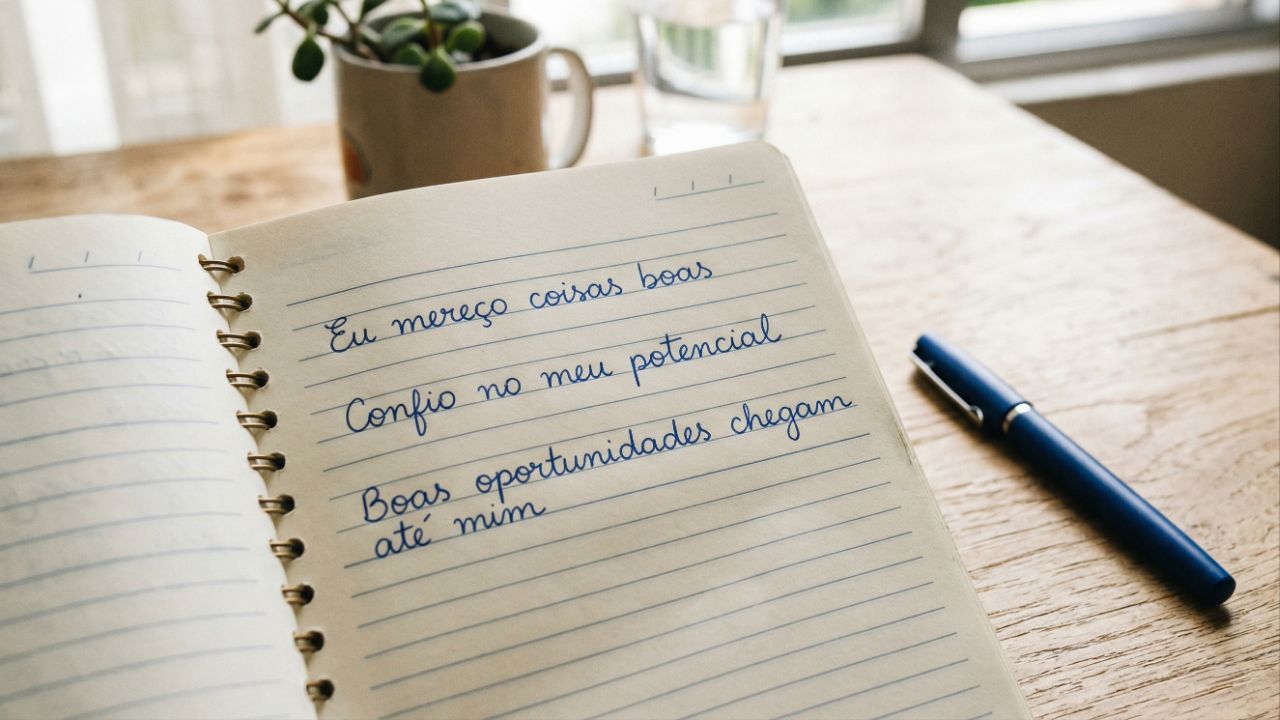 Eu mereço coisas boas
Confio no meu potencial
Boas oportunidades chegam
até mim